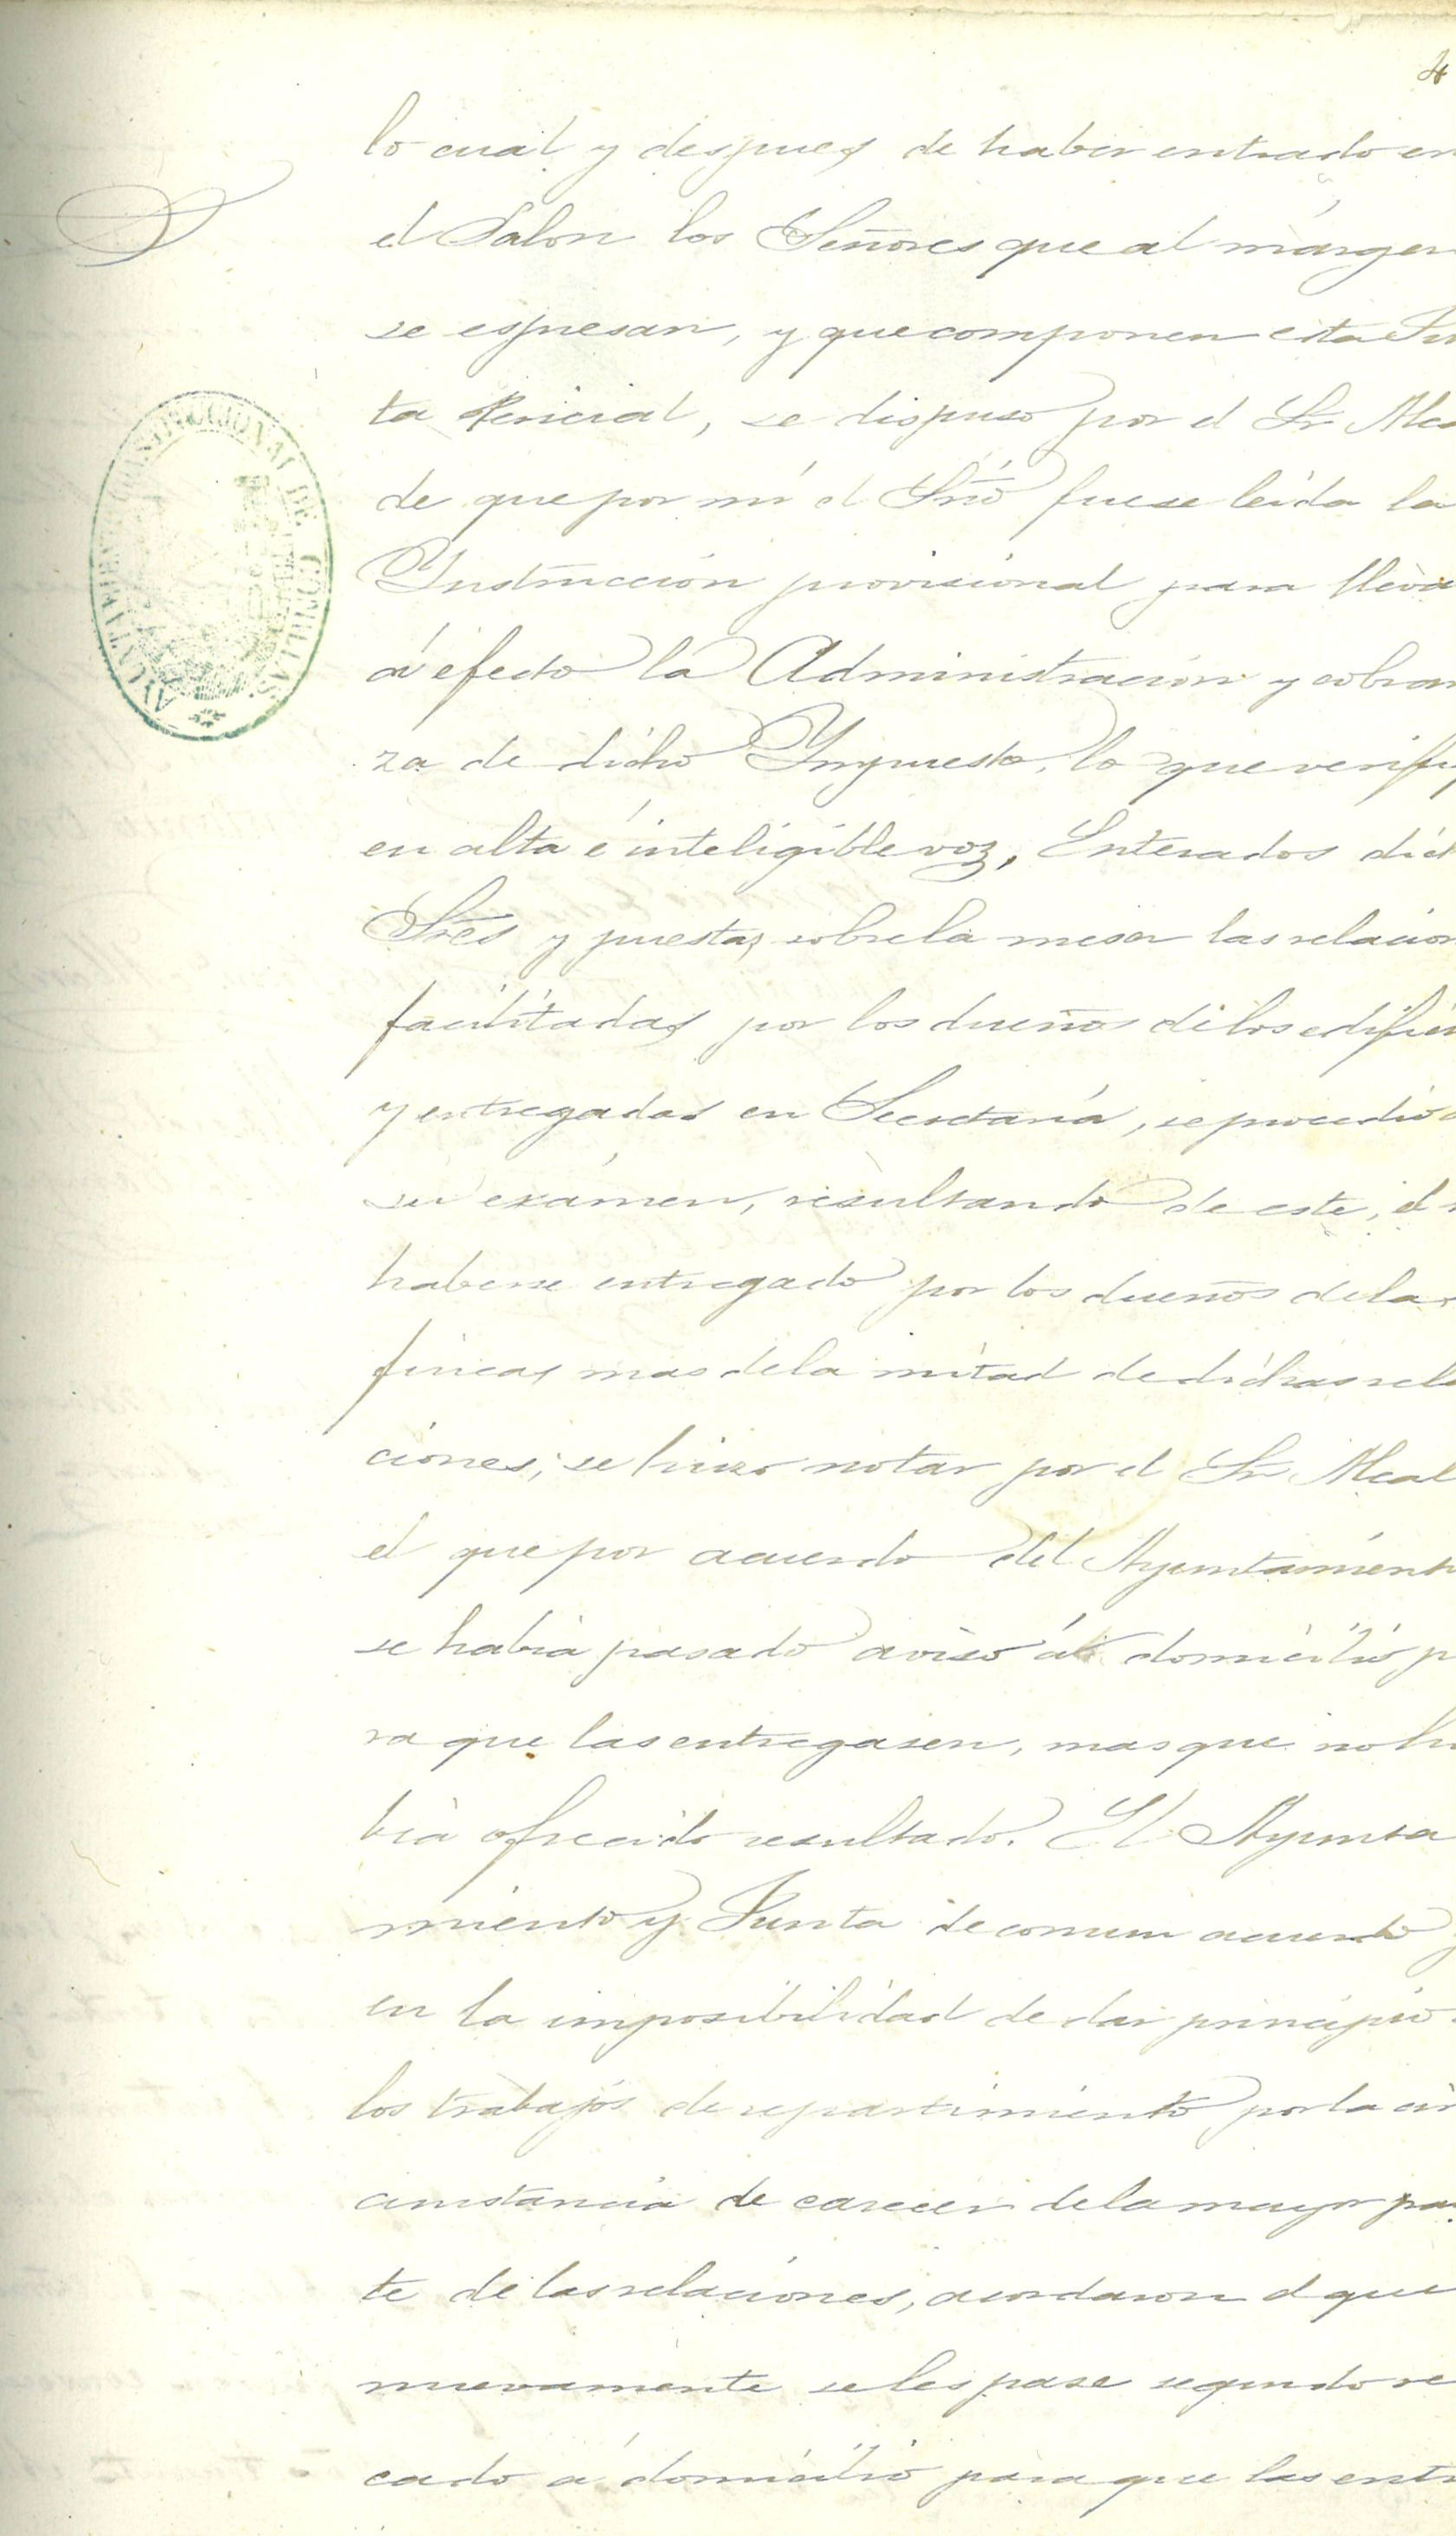 4
lo cual y despues de haber entrado en
el Salon los Señores que al márgen
se espresan, y que componen esta Jun
ta Pericial, se dispuso por el Sr. Alca
de que por mí el Srio fuese leida la
Instruccion provisional para lleva
á efecto la Administracion y cobran
za de dicho Ympuesto, lo que verifiq
en alta é inteligible voz, Enterados dich
Sres y puestas sobre la mesa las relacion
facilitadas por los dueños de los edifici
y entregadas en Secretaría, se procedió a
su exámen, resultando de este, el n
haberse entregado por los dueños de las
fincas mas de la mitad de dichas rela
ciones; se hizo notar por el Sr. Alcal
el que por acuerdo del Ayuntamiento
se habia pasado aviso á domicilio p
ra que las entregasen, mas que no ha
bia ofrecido resultado. El Ayunta
miento y Junta de comun acuerdo y
en la imposibilidad de dar principio a
los trabajos de repartimiento por la cir
cunstancia de carecer de la mayor par
te de las relaciones, acordaron el que
nuevamente se les pase segundo re
cado á domicilio para que las entr
AYUNTAMIENTO CONSTITUCIONAL DE COMILLAS